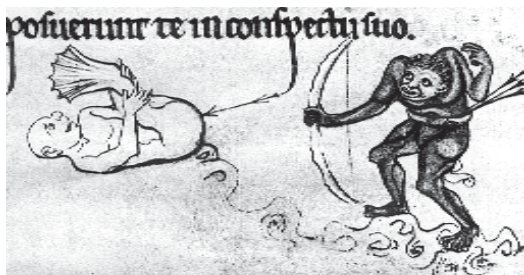 posuerunt te in conspectu suo.